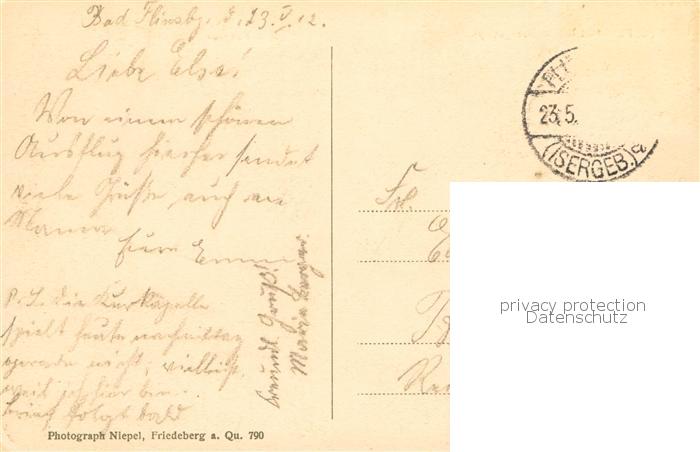 Bad Flinsbg. d. 23.V.12.
Liebe Else!
Von einem schönen
Ausflug hierher sendet
viele Grüße auch an
Mama
Eure Emmi
P.S. Die Kurkapelle
spielt heute nachmittag
gerade nicht, vielleicht,
weil ich hier bin.
Brief folgt bald
Photograph Niepel, Friedeberg a. Qu. 790
23.5.
(ISERGEB.)
Frl.
privacy protection
Datenschutz